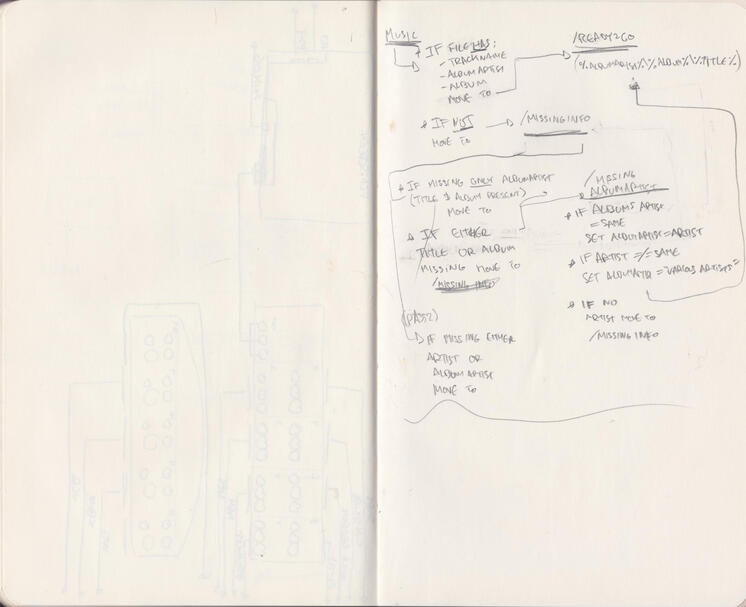 MUSIC
* IF FILE HAS:
- TRACKNAME
- ALBUMARTIST
- ALBUM
MOVE TO
/READY2GO
(%ALBUMARTIST%\%ALBUM%\%TITLE%)
* IF NOT
MOVE TO
/MISSINGINFO
* IF MISSING ONLY ALBUMARTIST
(TITLE & ALBUM PRESENT)
MOVE TO
* IF EITHER
TITLE OR ALBUM
MISSING MOVE TO
/MISSING INFO
/MISSING
ALBUMARTIST
* IF ALBUMS ARTIST
= SAME
SET ALBUMARTIST=ARTIST
* IF ARTIST =/= SAME
SET ALBUMARTIST="VARIOUS ARTISTS"
* IF NO
ARTIST MOVE TO
/MISSING INFO
(PASS2)
IF MISSING EITHER
ARTIST OR
ALBUM ARTIST
MOVE TO